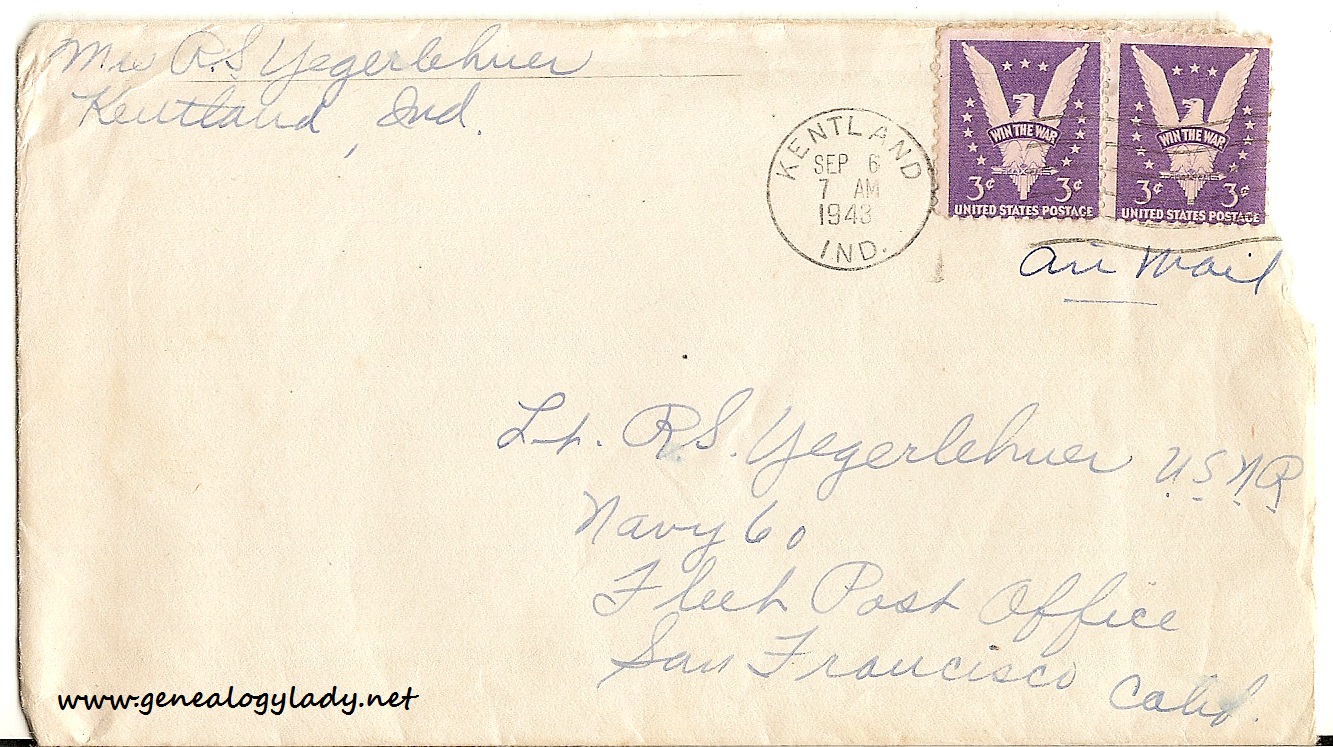 Mrs R.S Yegerlehner
Kentland, Ind.
KENTLAND
SEP 6
7 AM
1943
IND.
WIN THE WAR
3¢ 3¢
UNITED STATES POSTAGE
WIN THE WAR
3¢ 3¢
UNITED STATES POSTAGE
Air Mail
Lt. R.S. Yegerlehner USNR
Navy 60
Fleet Post Office
San Francisco Calif.
www.genealogylady.net